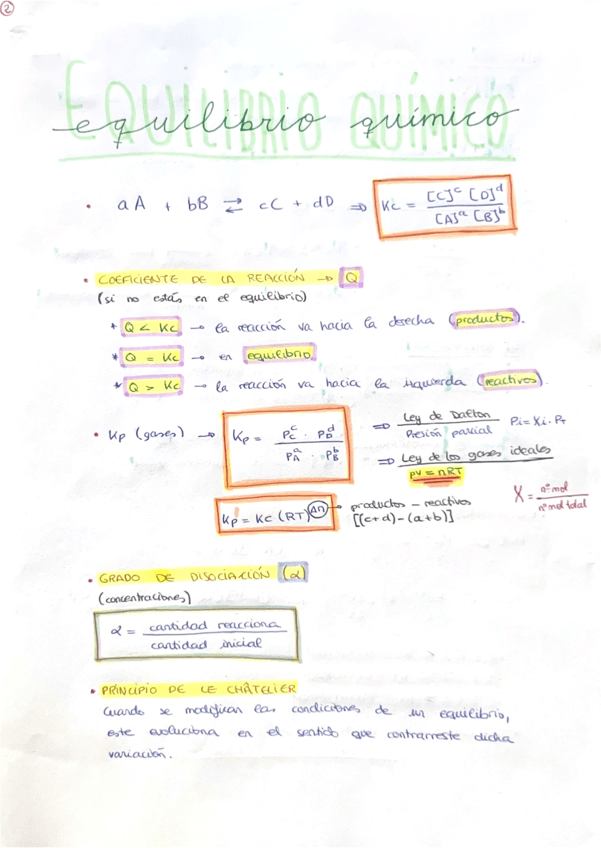 2
EQUILIBRIO QUÍMICO
equilibrio químico
• aA + bB ⇄ cC + dD ⇒ Kc = [C]^c [D]^d / [A]^a [B]^b
• COEFICIENTE DE LA REACCIÓN → Q
(si no estás en el equilibrio)
* Q < Kc → la reacción va hacia la derecha (productos).
* Q = Kc → en equilibrio.
* Q > Kc → la reacción va hacia la izquierda (reactivos).
• Kp (gases) → Kp = P_C^c · P_D^d / P_A^a · P_B^b
⇒ Ley de Dalton / Presión parcial Pi = Xi · PT
⇒ Ley de los gases ideales
PV = nRT
X = nº mol / nº mol total
Kp = Kc (RT)^Δn → productos - reactivos
[(c+d) - (a+b)]
• GRADO DE DISOCIACIÓN (α)
(concentraciones)
α = cantidad reacciona / cantidad inicial
• PRINCIPIO DE LE CHÂTELIER
Cuando se modifican las condiciones de un equilibrio,
este evoluciona en el sentido que contrarreste dicha
variación.